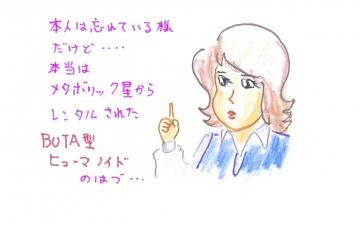 本人は忘れている様
だけど‥‥
本当は
メタボリック星から
レンタルされた
BUTA型
ヒューマノイド
のはづ…